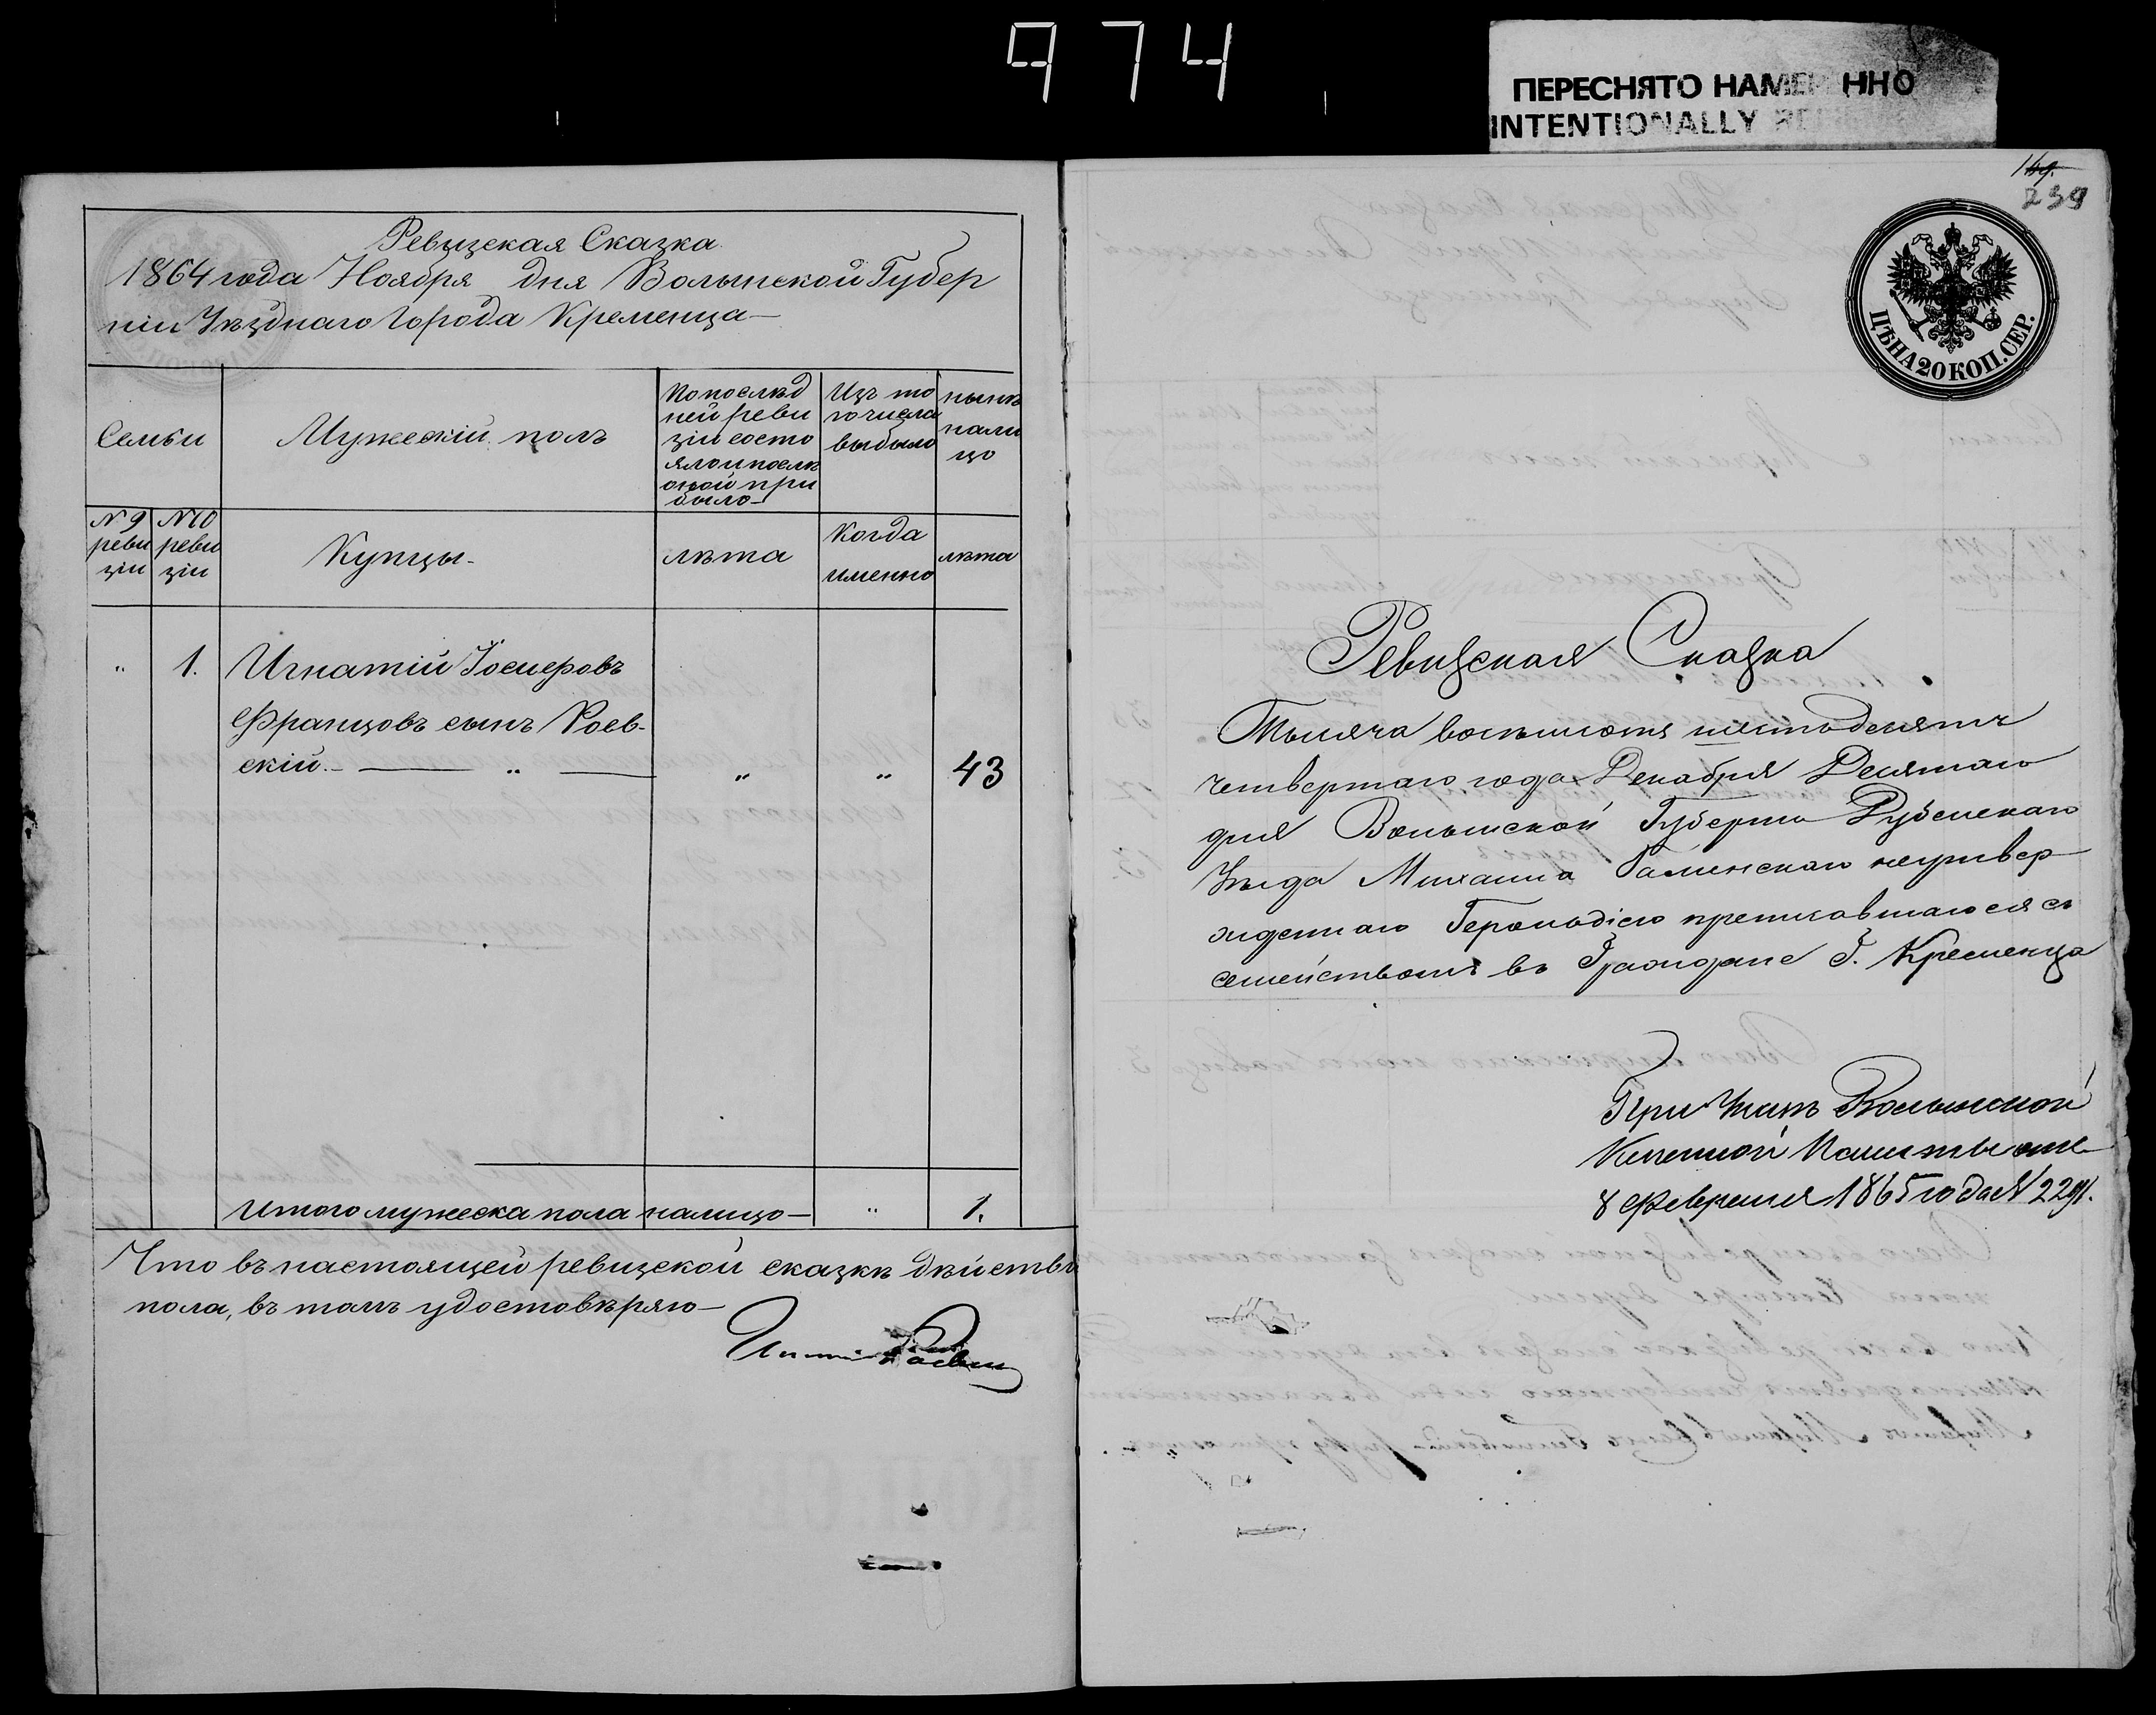 974
ПЕРЕСНЯТО НАМЕР ННО
INTENTIONALLY
Ревизская Сказка
1864 года Ноября дня Волынской Губер
ніи Уѣзднаго Города Кременца
Семьи
Мужескій полъ
По послѣд
ней реви
зіи состо
яло и послѣ
оной при
было
Изъ то
го числа
выбыло
нынѣ
нали
цо
№ 9
реви
зіи
№ 10
реви
зіи
Купцы.
лѣта
Когда
именно
лѣта
" 1. Игнатій Іосиеровъ
Францовъ сынъ Роев-
скій. " " " 43
Итого мужеска пола налицо " 1.
Что въ настоящей ревизской сказкѣ дѣйств
пола, въ томъ удостовѣряю
169.
239
ЦѢНА 20 КОП. СЕР.
Ревизская Сказка
Тысяча восемьсотъ шестьдесятъ
четвертаго года Декабря Десятаго
дня Волынской Губерніи Дубенскаго
Уѣзда Михаила неутвер
жденнаго Герольдіею приписавшагося съ
семействомъ въ Граждане Г. Кременца
При Указѣ Волынской
Казенной Палаты отъ
8 Февраля 1865 года №